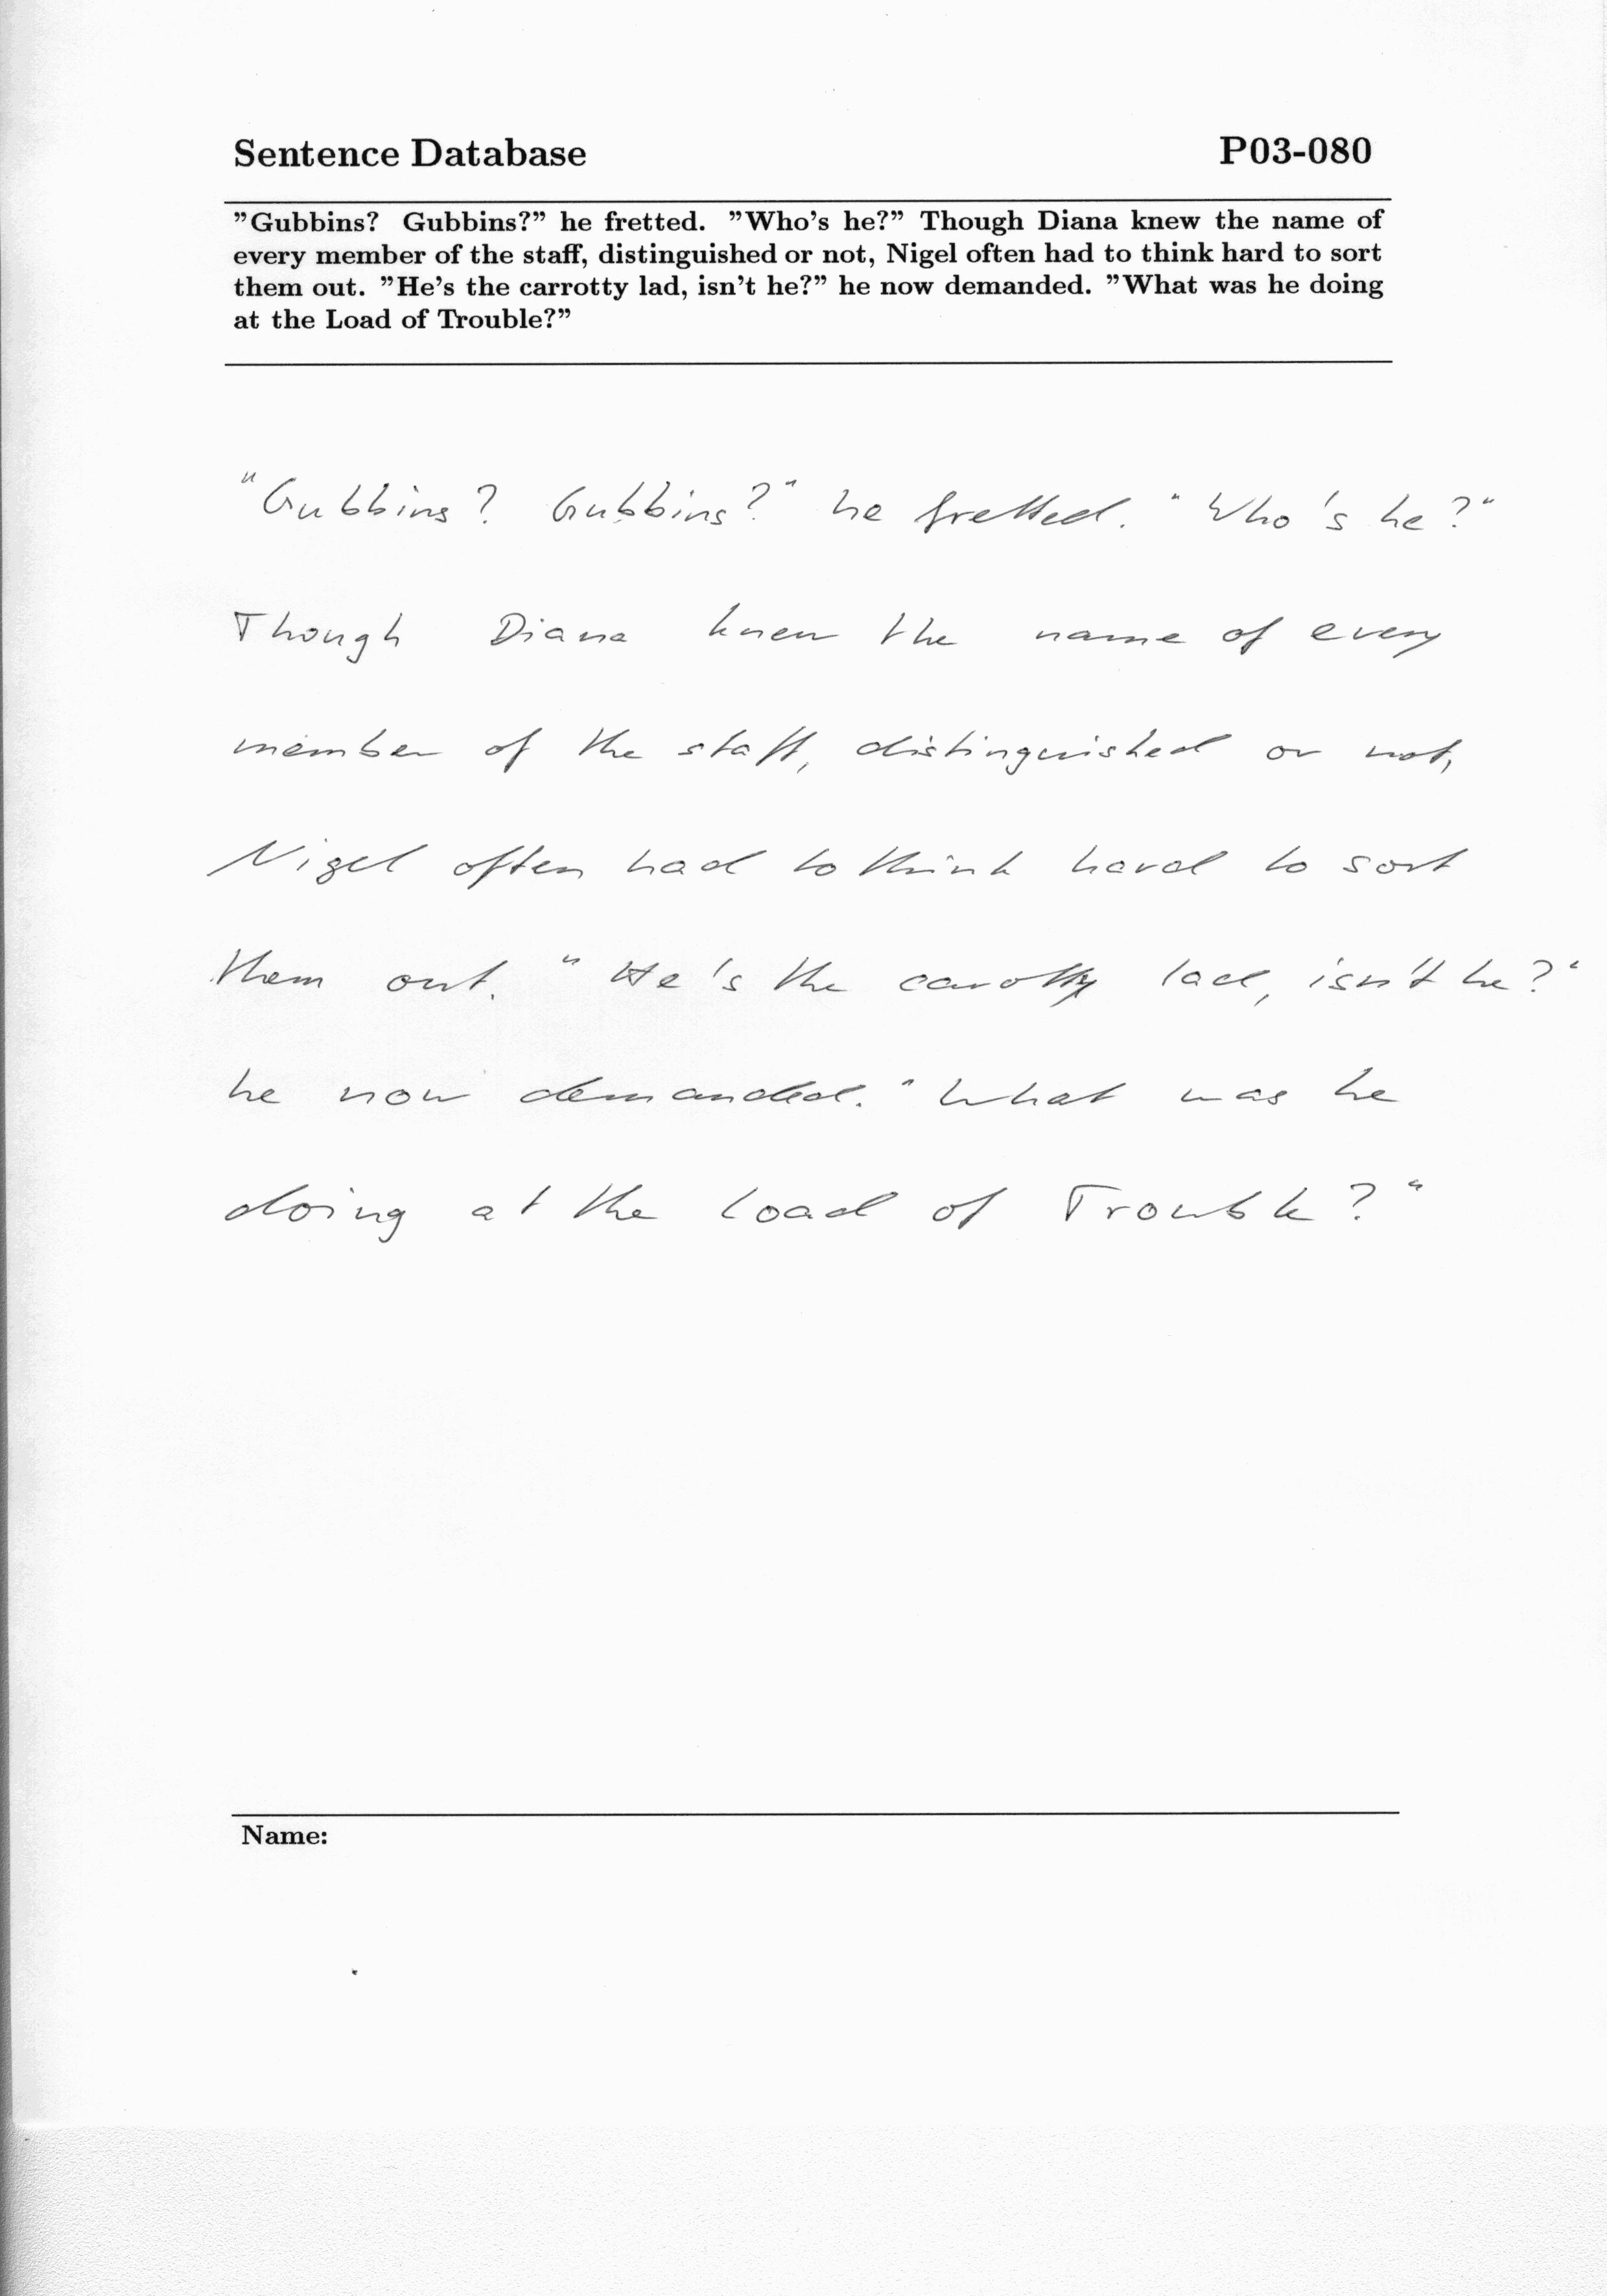 Sentence Database P03-080
”Gubbins? Gubbins?” he fretted. ”Who’s he?” Though Diana knew the name of
every member of the staff, distinguished or not, Nigel often had to think hard to sort
them out. ”He’s the carrotty lad, isn’t he?” he now demanded. ”What was he doing
at the Load of Trouble?”
"Gubbins? Gubbins?" he fretted. "Who's he?"
Though Diana knew the name of every
member of the staff, distinguished or not,
Nigel often had to think hard to sort
them out. "He's the carotty lad, isn't he?"
he now demanded. "What was he
doing at the Load of Trouble?"
Name: